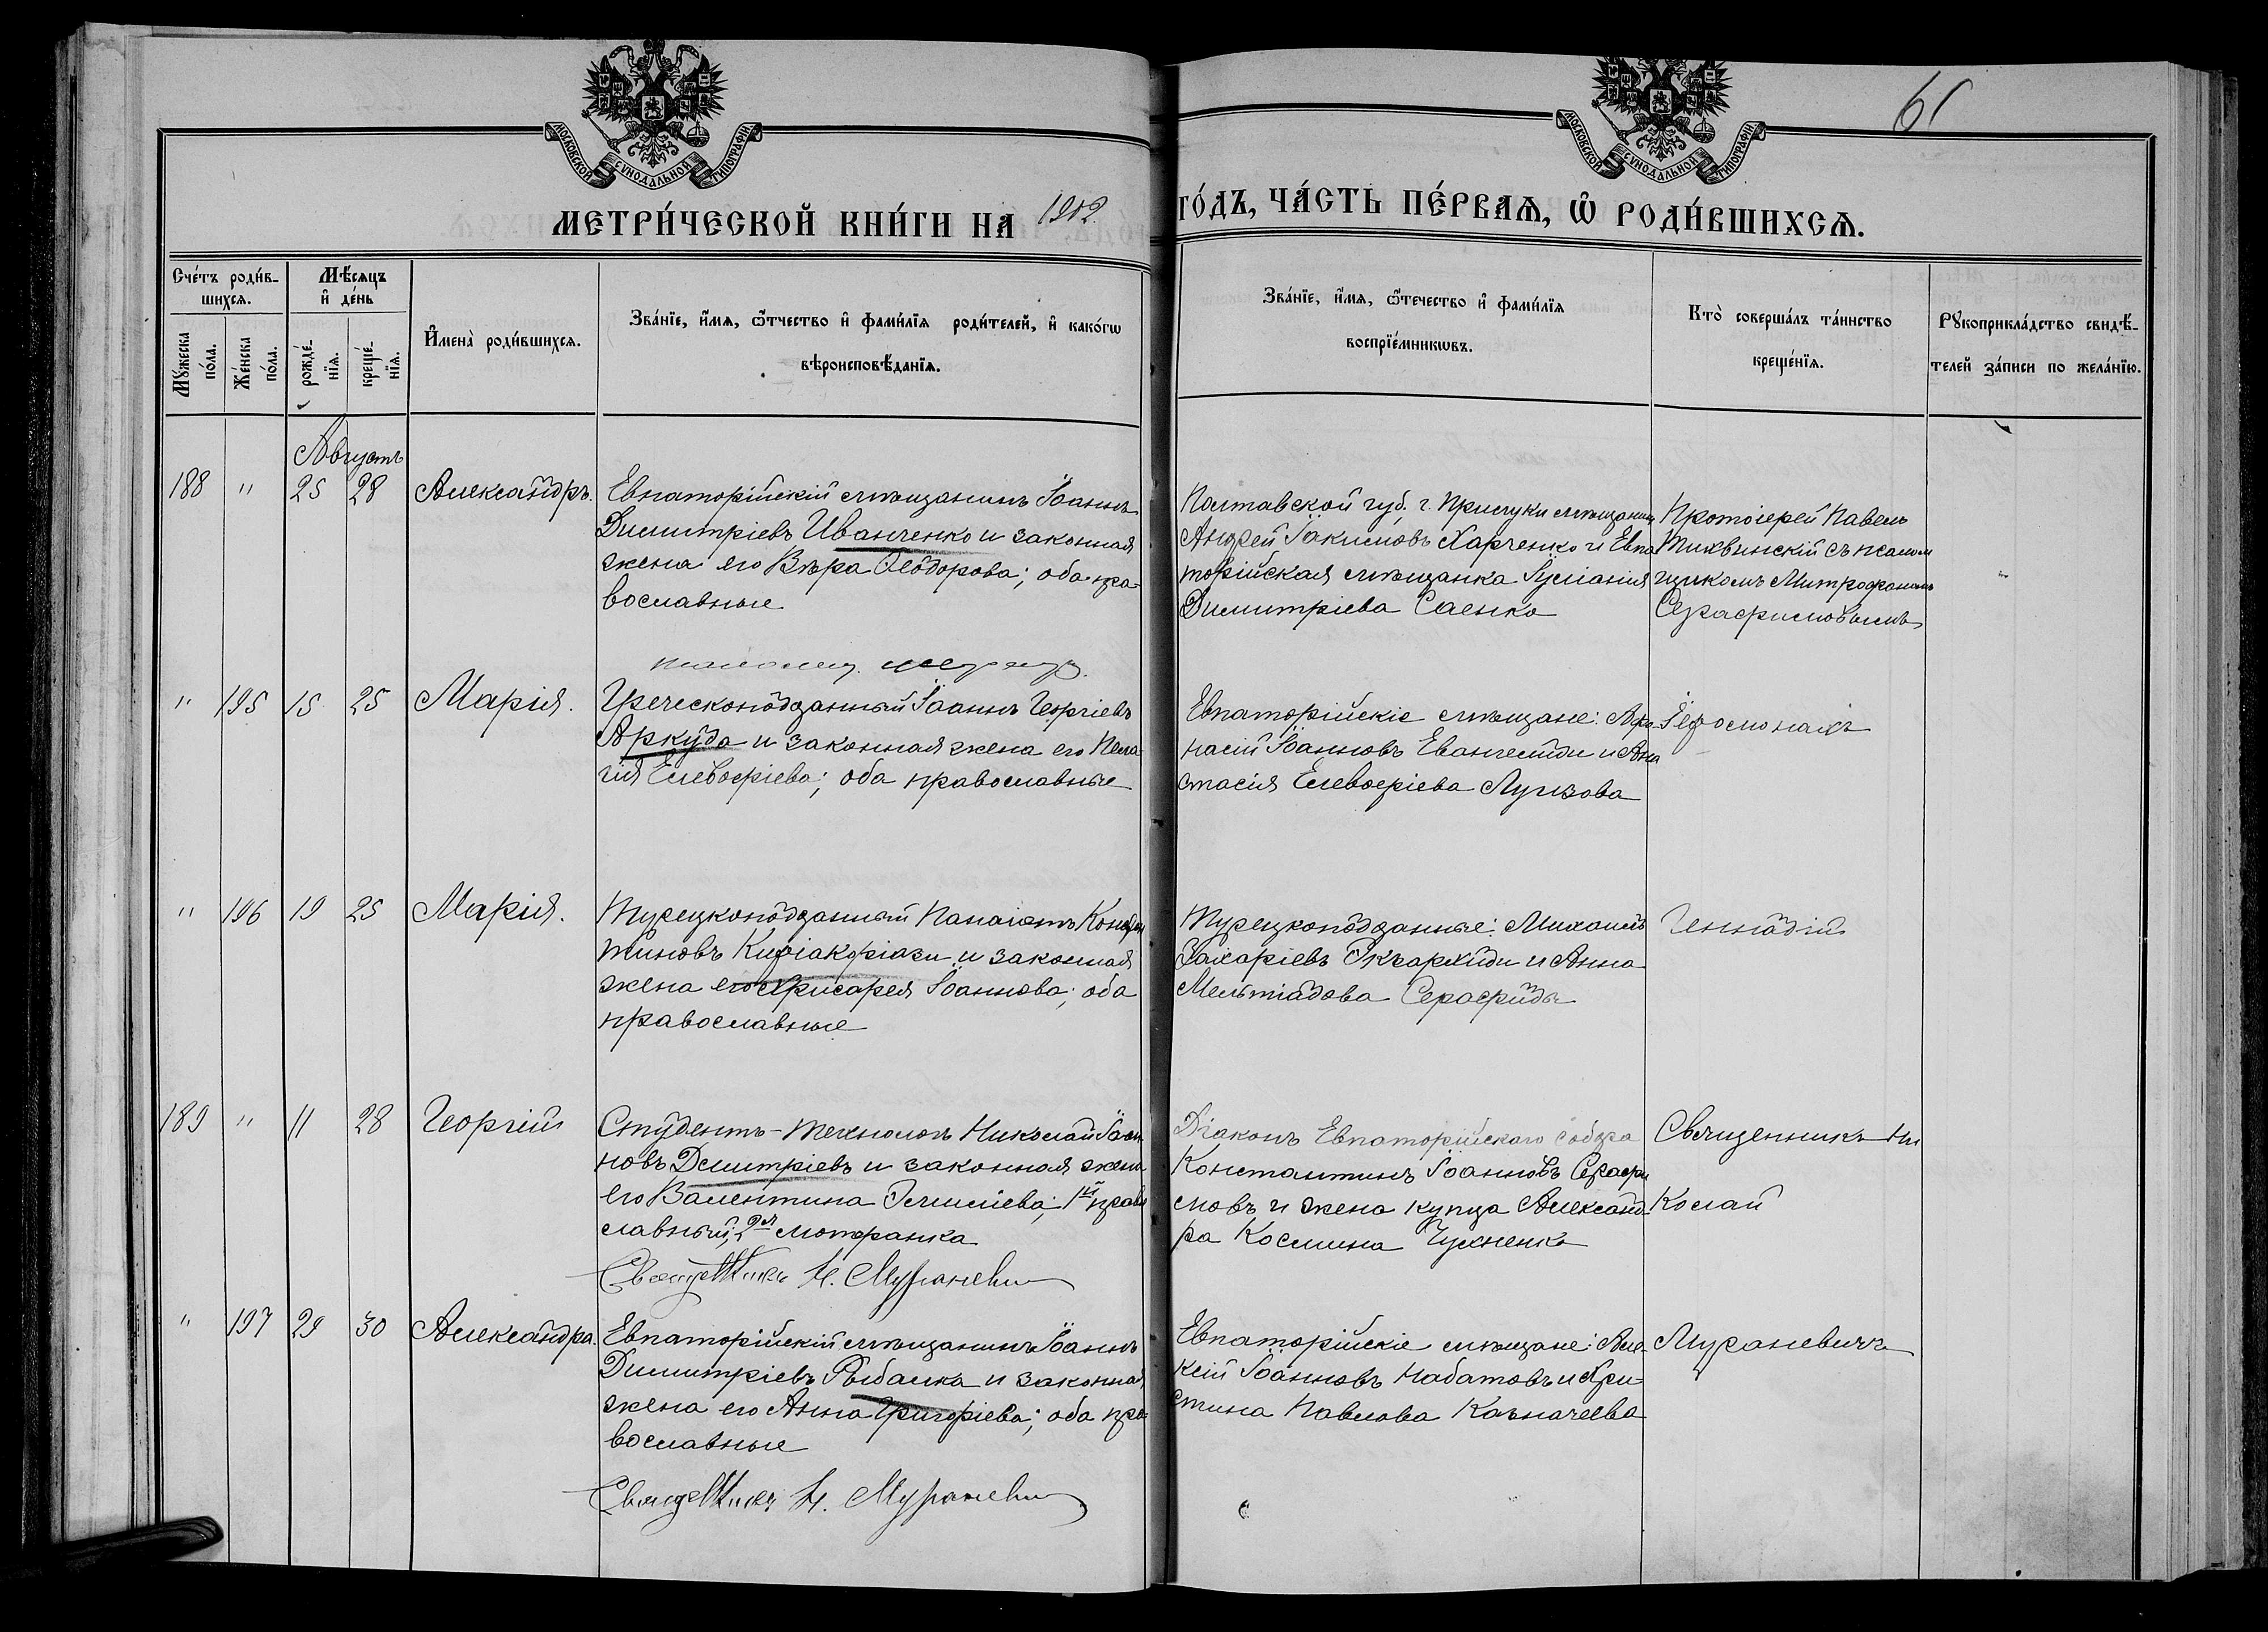 МОСКОВСКОЙ СѴНОДАЛЬНОЙ ТИПОГРАФІИ
МОСКОВСКОЙ СѴНОДАЛЬНОЙ ТИПОГРАФІИ
61
МЕТРИ́ЧЕСКОЙ КНИ́ГИ НА 1912
ГО́ДЪ, ЧА́СТЬ ПЕ́РВАѦ, Ѡ҆ РОДИ́ВШИХСѦ.
Сче́тъ роди́в-
шихсѧ.
Мꙋ́жеска по́ла.
Же́нска по́ла.
Мѣ́сѧцъ
и҆ де́нь
рожде́-
нїѧ.
креще́-
нїѧ.
И҆мена̀ роди́вшихсѧ.
Зва́нїе, и҆́мѧ, ѻ҆́тчество и҆ фами́лїѧ роди́телей, и҆ како́гѡ
вѣроисповѣ́данїѧ.
Зва́нїе, и҆́мѧ, ѻ҆́течество и҆ фами́лїѧ
воспрїе́мникѡвъ.
Кто̀ соверша́лъ та́инство
креще́нїѧ.
Рꙋкоприкла́дство свидѣ́-
телей за́писи по жела́нїю.
Августъ
188 " 25 28 Александръ.
Евпаторійскій мѣщанинъ Іоаннъ
Димитріевъ Иванченко и законная
жена его Вѣра Ѳеодорова; оба пра-
вославные
Полтавской губ. г. Прилуки мѣщанинъ
Андрей Іакимовъ Харченко и Евпа
торійская мѣщанка Іуліанія
Димитріева Саенко
Протоіерей Павелъ
Тихвинскій съ псалом
щикомъ Митрофаномъ
Серафимовымъ
" 195 15 25 Марія.
Греческоподданный Іоаннъ Георгіевъ
Аркуда и законная жена его Пела-
гія Елевферіева; оба православные
Евпаторійскіе мѣщане: Афа-
насій Іоанновъ Евангелиди и Ана
стасія Елевферіева Лугзова
Іеромонахъ
" 196 19 25 Марія.
Турецкоподданный Панаіотъ Констан
тиновъ Киріакфіази и законная
жена его Хрисафея Іоаннова; оба
православные
Турецкоподданные: Михаилъ
Захаріевъ и Анна
Мельтіадова Серафиди
Геннадій
189 " 11 28 Георгій
Студентъ-технологъ Николай Іоан
новъ Дмитріевъ и законная жена
его Валентина; 1ый право
славный, 2ая лютеранка
Священникъ Н. Мураневич
Діаконъ Евпаторійскаго собора
Константинъ Іоанновъ Серафи
мовъ и жена купца Александ-
ра Космина Чухненко
Священникъ Ни
колай
" 197 29 30 Александра.
Евпаторійскій мѣщанинъ Іоаннъ
Димитріевъ Рыбалка и законная
жена его Анна Григоріева; оба пра-
вославные
Священникъ Н. Мураневич
Евпаторійскіе мѣщане: Але-
ксій Іоанновъ Набатовъ и Хри-
стина Павлова Казначеева
Мураневичъ